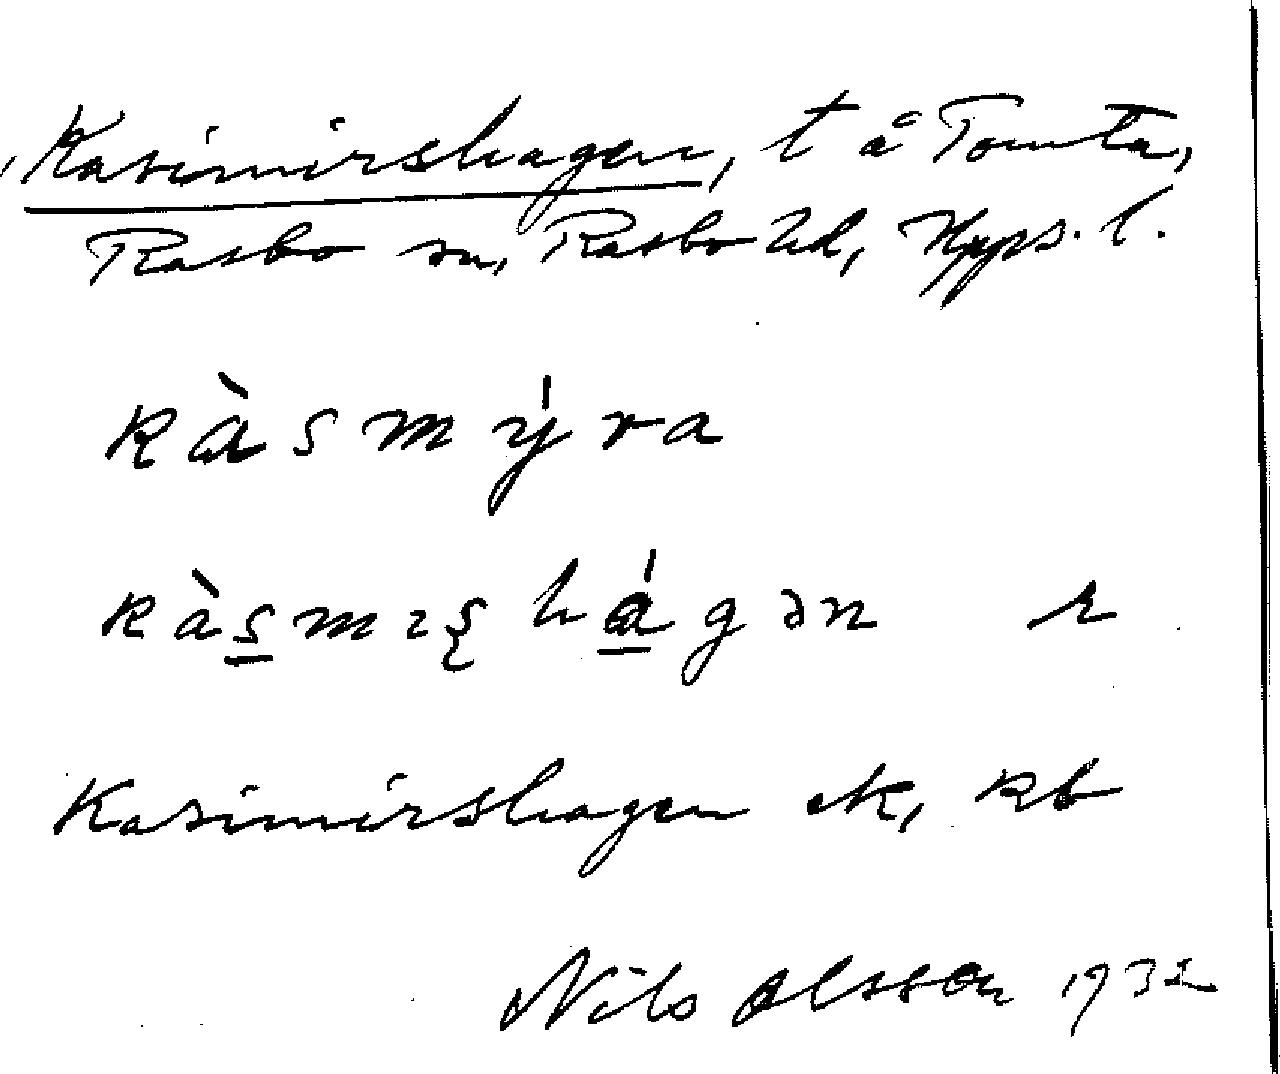 Kasimirshagen, t å Tomta,
Rasbo sn, Rasbo hd, Upps. l.
kàsmýra
kàs̲mɪʂhá̲gən r
Kasimirshagen ek, kb
Nils Olsson 1932